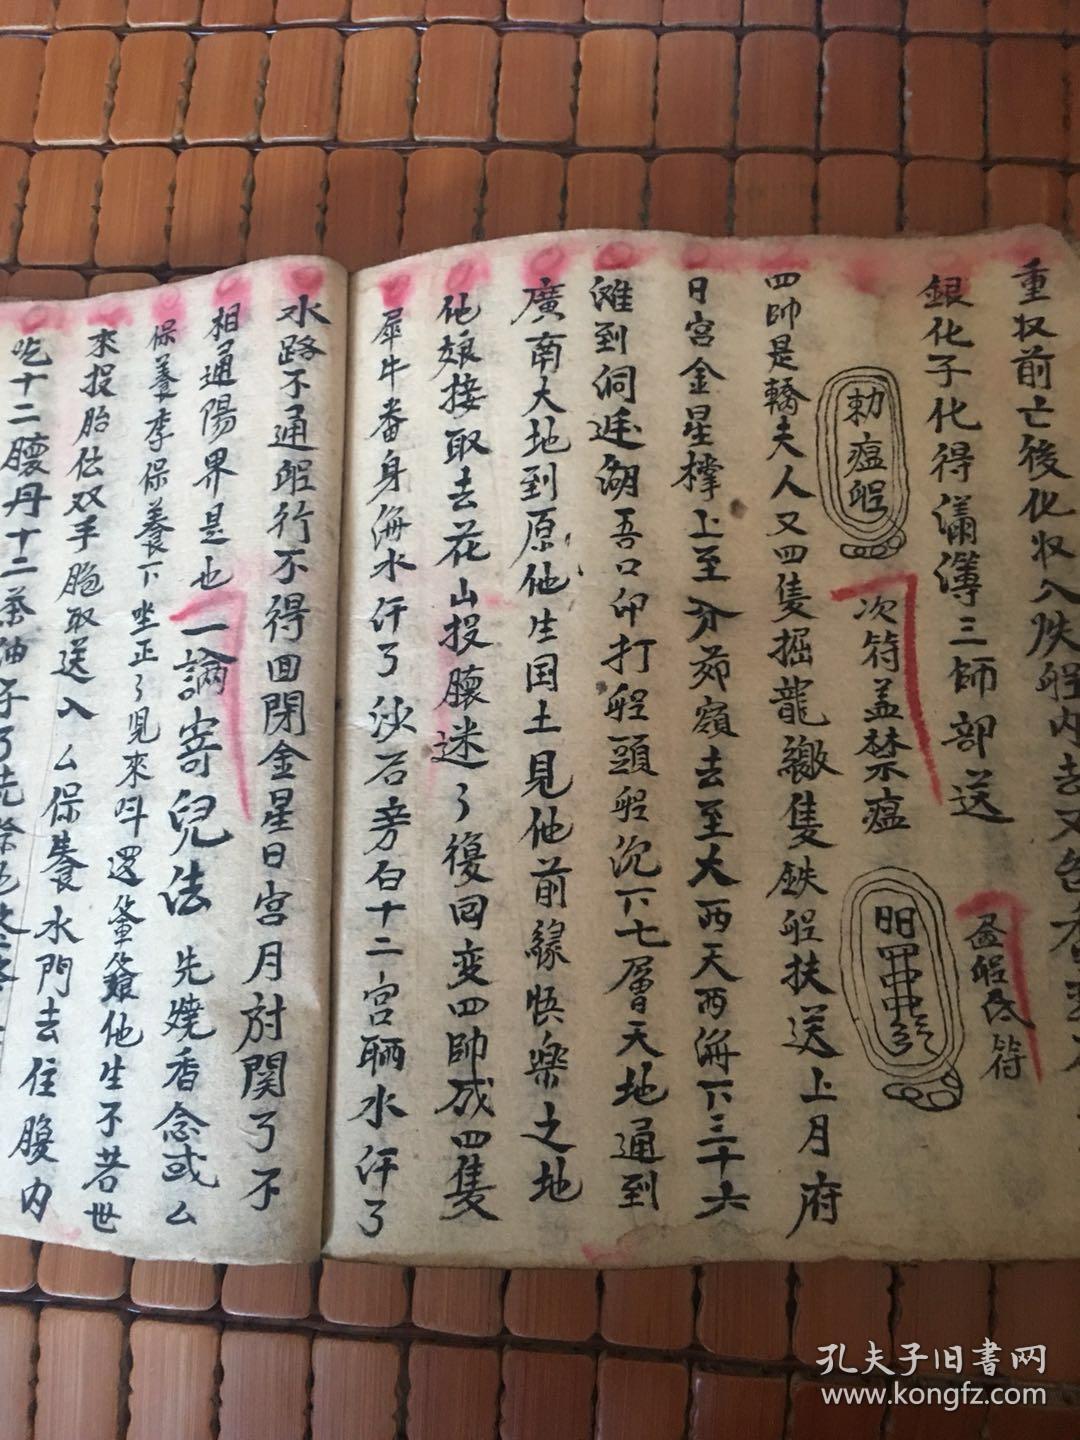 重收前亡後化收入
銀化子化得滿簿三師部送
勅瘟
次符盖禁瘟
符
四帥是轎夫人又四隻掘龍繳隻鉄船扶送上月府
日宮金星撑上至分茆嶺去至大西天西海下三十六
滩到洞廷湖吾口卬打船頭船沉下七層天地通到
廣南大地到原他生国土見他前緣快樂之地
他娘接取去花山投腂迷了復回变四帥成四隻
犀牛番身海水汗了沙石旁白十二宮晒水汗了
水路不通船行不得回閉金星日宮月府関了不
相通陽界是也一論寄兒法先燒香念或厶
保養李保養下坐正了見來叫還他生不若世
來投胎估双手胞取送入厶保養水門去住腹内
吃十二腂丹十二茶油子了
孔夫子旧書网
www.kongfz.com